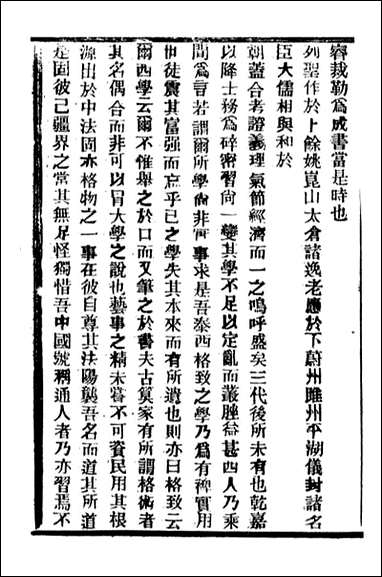 容裁勒爲成書當是時也
列聖作於上餘姚崑山太倉諸逸老應於下蔚州睢州平湖儀封諸名
臣大儒相與和於
朝蓋合考證義理氣節經濟而一之嗚呼盛矣三代後所未有也乾嘉
以降士務爲碎密習尚一變其學不足以定亂而叢脞益甚西人乃乘
間爲言若謂爾所學尚非實事求是吾泰西格致之學乃爲有裨實用
世徒震其富强而忘乎已之學失其本來而有所遺也則亦曰格致云
爾西學云爾不惟舉之於口而又筆之於書夫古算家有所謂格術者
其名偶合而非可以冒大學之說也藝事之精未嘗不可資民用其根
源出於中法固亦格物之一事在彼自尊其法陽襲吾名而道其所道
是固彼己疆界之當其無足怪獨惜吾中國號稱通人者乃亦習焉不